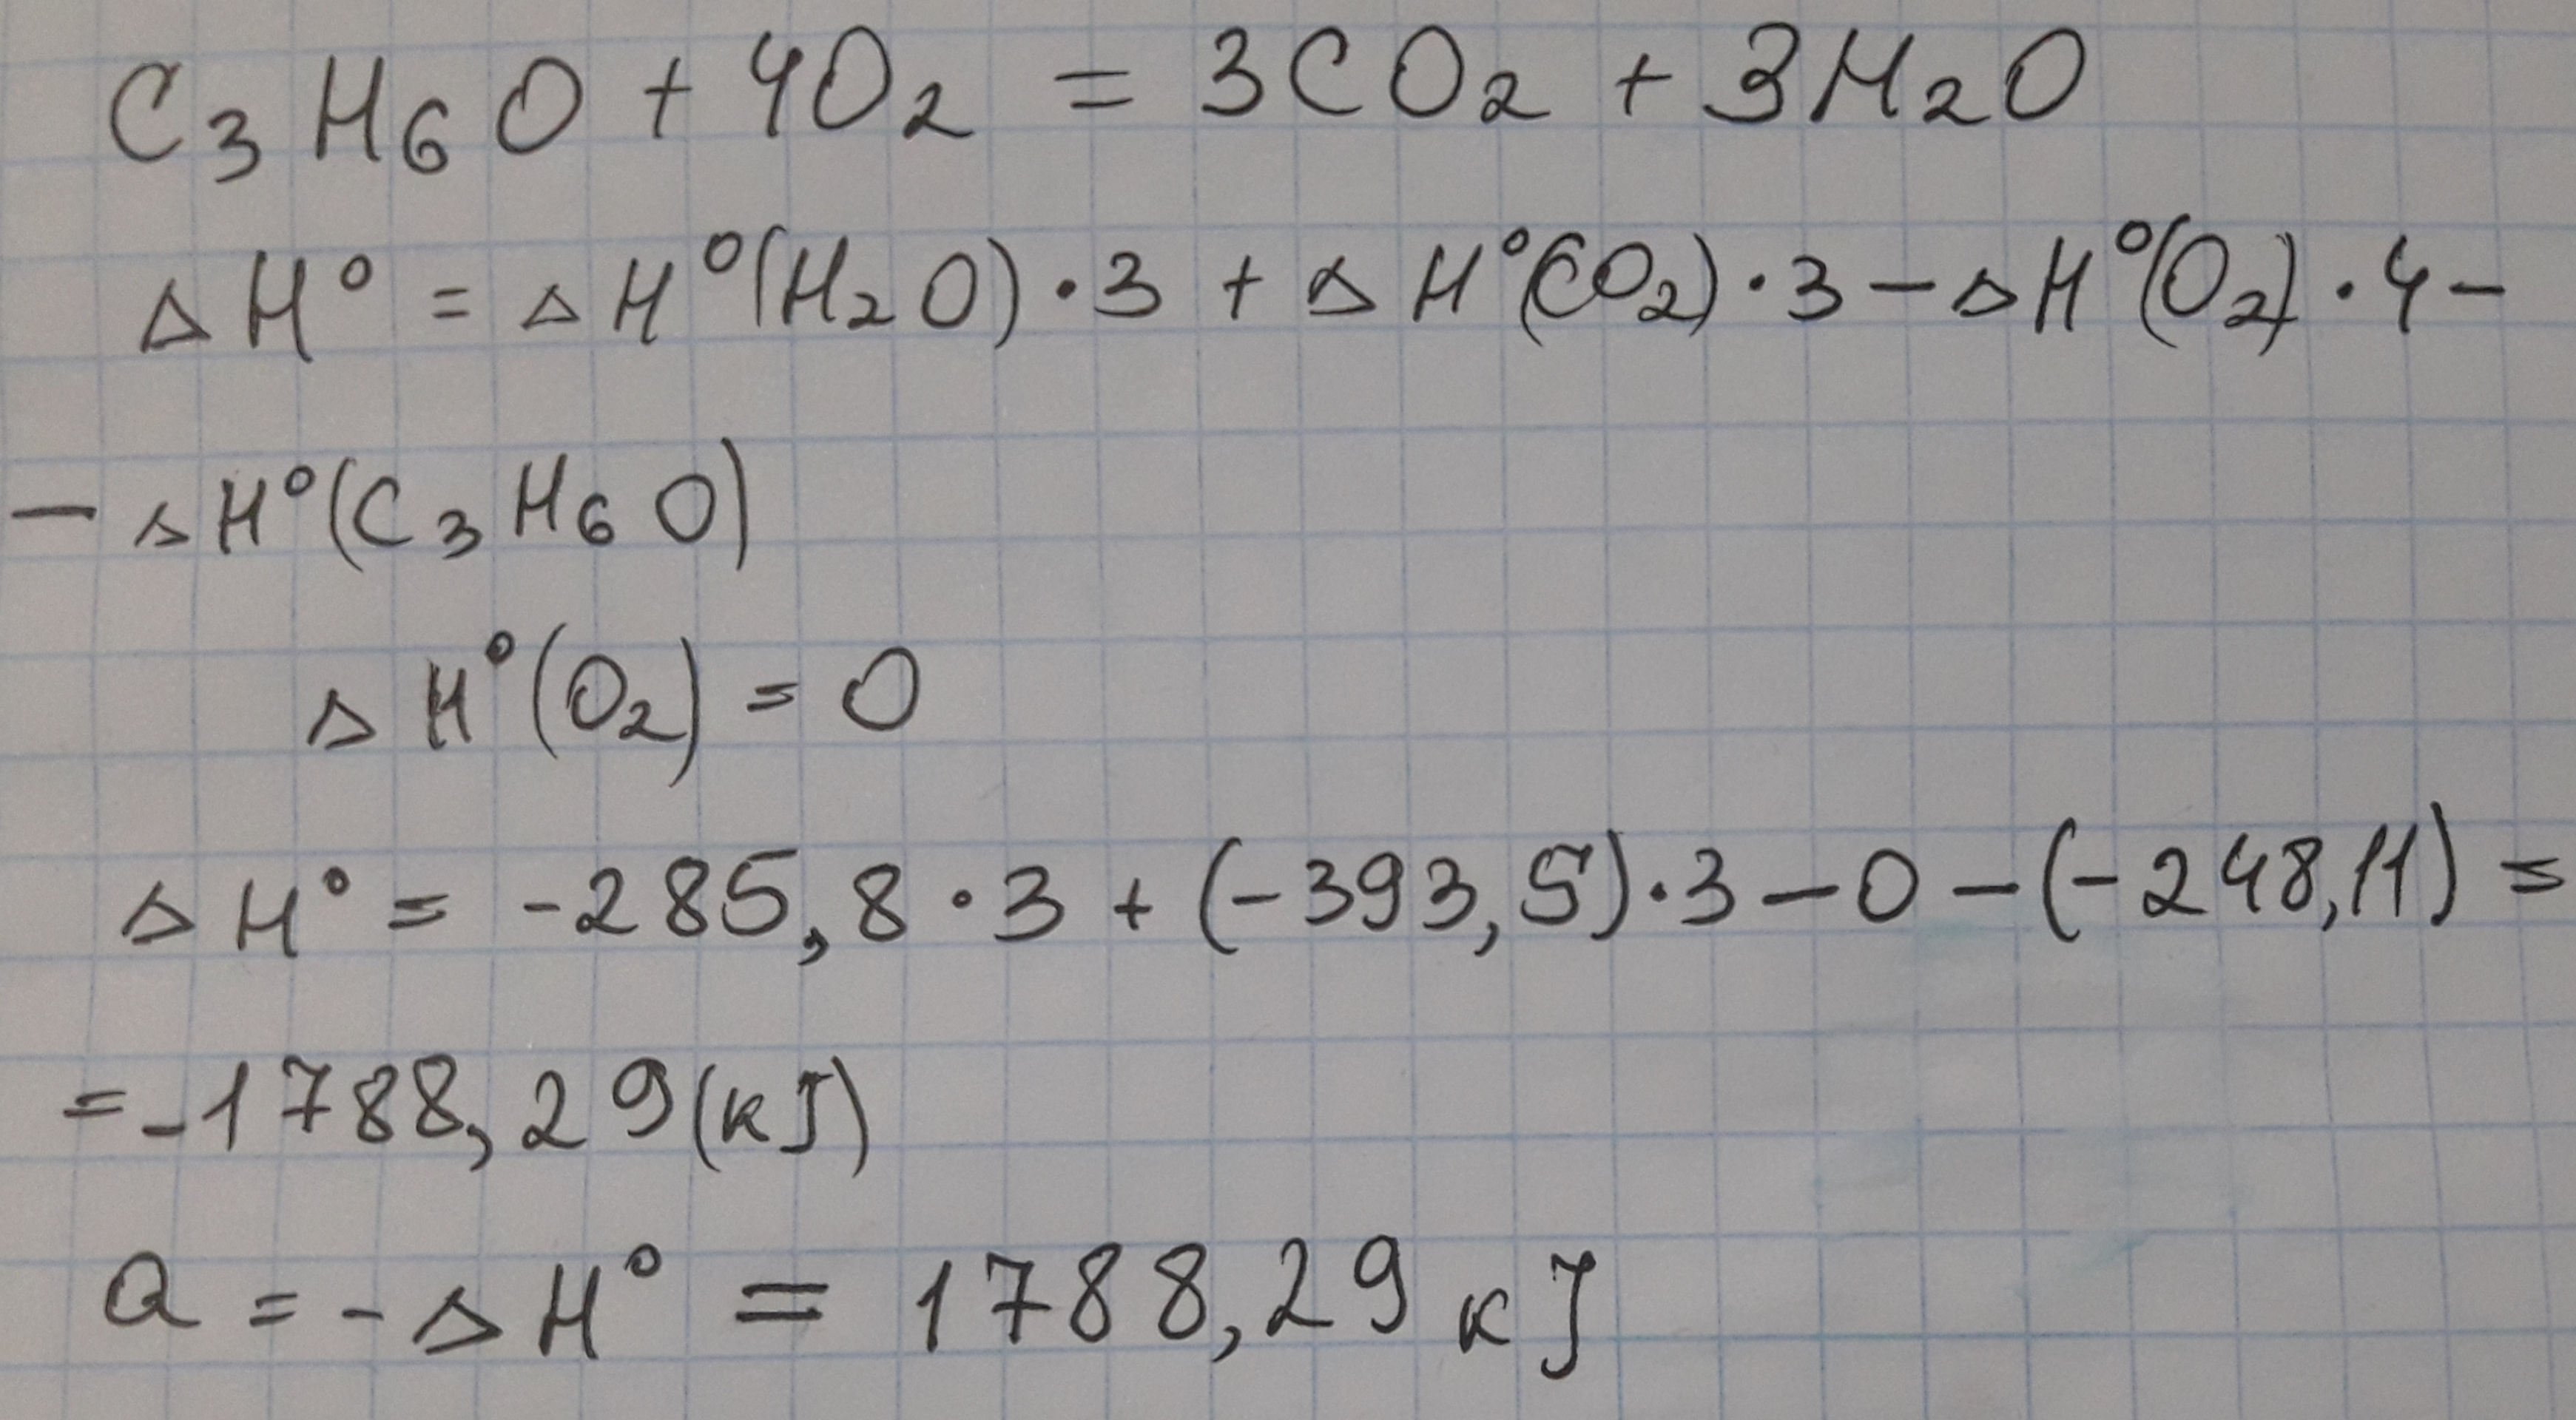 C₃H₆O + 4O₂ = 3CO₂ + 3H₂O
ΔH° = ΔH°(H₂O)·3 + ΔH°(CO₂)·3 – ΔH°(O₂)·4 –
– ΔH°(C₃H₆O)
ΔH°(O₂) = 0
ΔH° = -285,8·3 + (-393,5)·3 – 0 – (-248,11) =
= -1788,29 (кJ)
Q = -ΔH° = 1788,29 кJ